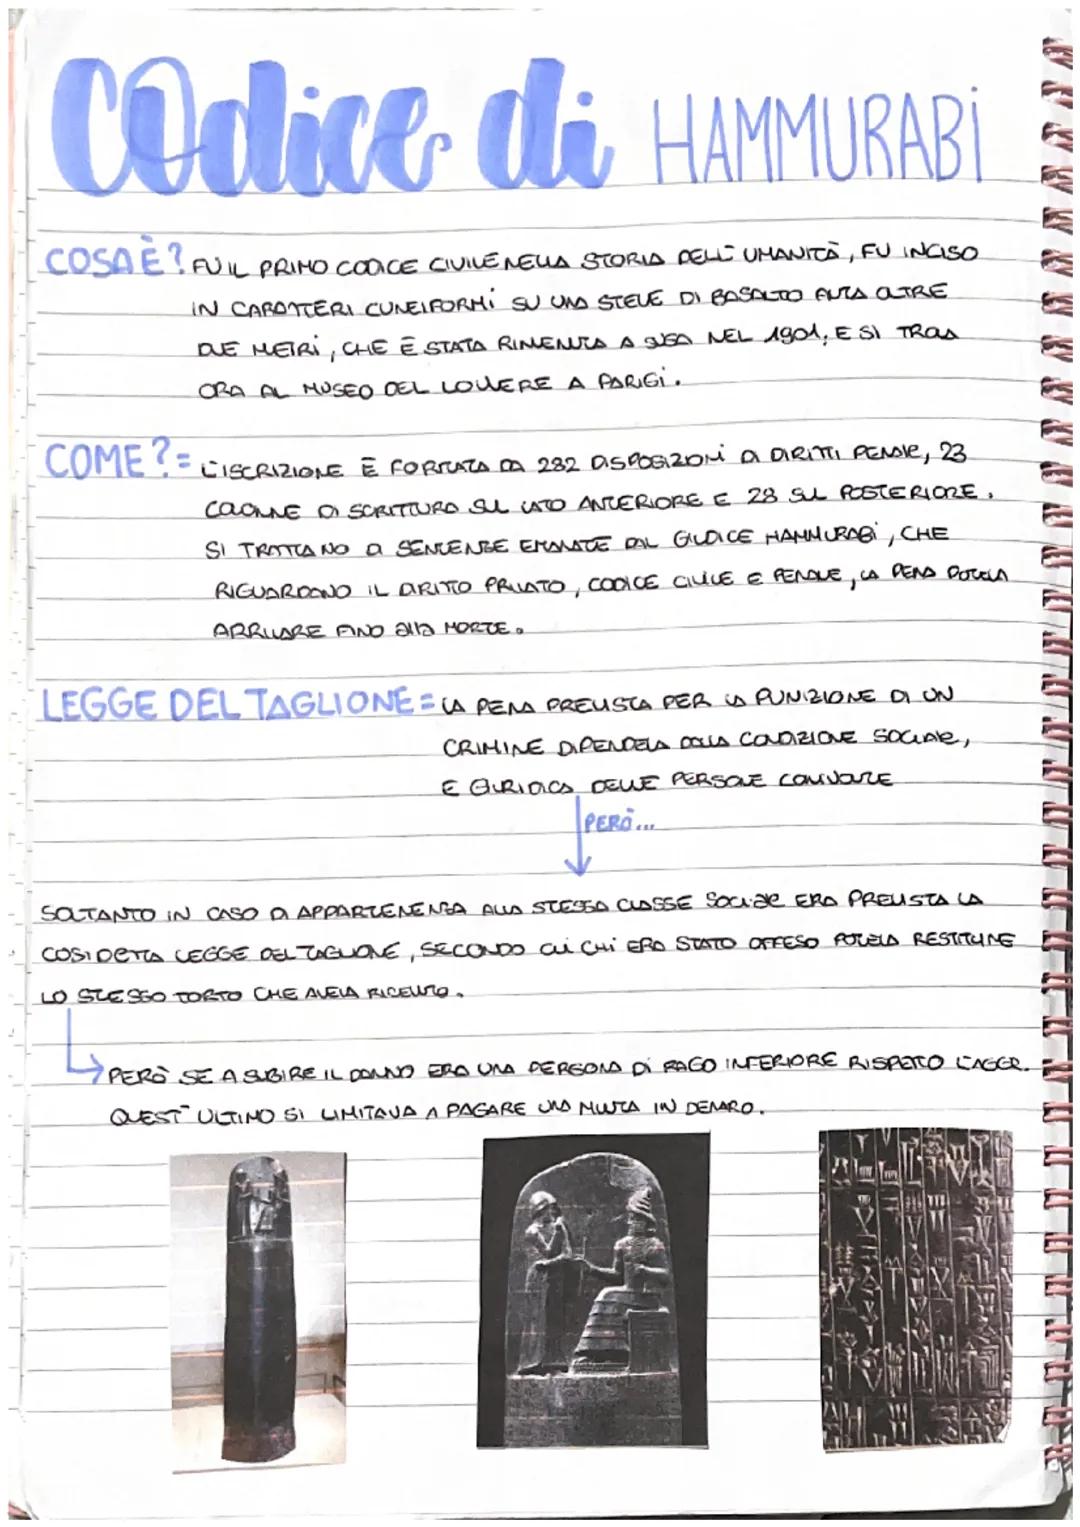 Codice di HAMMURABI
COSA È? FU IL PRIMO CODICE CIVILE NELLA STORIA DELL'UMANITÀ, FU INCISO
IN CARATTERI CUNEIFORMI SU UNA STELE DI BASALTO ALTA OLTRE
DUE METRI, CHE È STATA RINVENUTA A SUSA NEL 1901, E SI TROVA
ORA AL MUSEO DEL LOUVERE A PARIGI.
COME?= L'ISCRIZIONE È FORMATA DA 282 DISPOSIZIONI DI DIRITTI PENALE, 23
COLONNE DI SCRITTURA SUL LATO ANTERIORE E 28 SUL POSTERIORE.
SI TRATTANO DI SENTENZE EMANATE DAL GIUDICE HAMMURABI, CHE
RIGUARDANO IL DIRITTO PRIVATO, CODICE CIVILE E PENALE, LA PENA POTEVA
ARRIVARE FINO alla MORTE.
LEGGE DEL TAGLIONE= LA PENA PREVISTA PER LA PUNIZIONE DI UN
CRIMINE DIPENDEVA DALLA CONDIZIONE SOCIALE,
E GIURIDICA DELLE PERSONE COINVOLTE
PERÒ...
SOLTANTO IN CASO DI APPARTENENZA ALLA STESSA CLASSE SOCIALE ERA PREVISTA LA
COSIDETTA LEGGE DEL TAGLIONE, SECONDO CUI CHI ERA STATO OFFESO POTEVA RESTITUIRE
LO STESSO TORTO CHE AVEVA RICEVUTO.
PERÒ SE A SUBIRE IL DANNO ERA UNA PERSONA DI RAGO INFERIORE RISPETTO L'AGGR.
QUEST'ULTIMO SI LIMITAVA A PAGARE UNA MULTA IN DENARO.